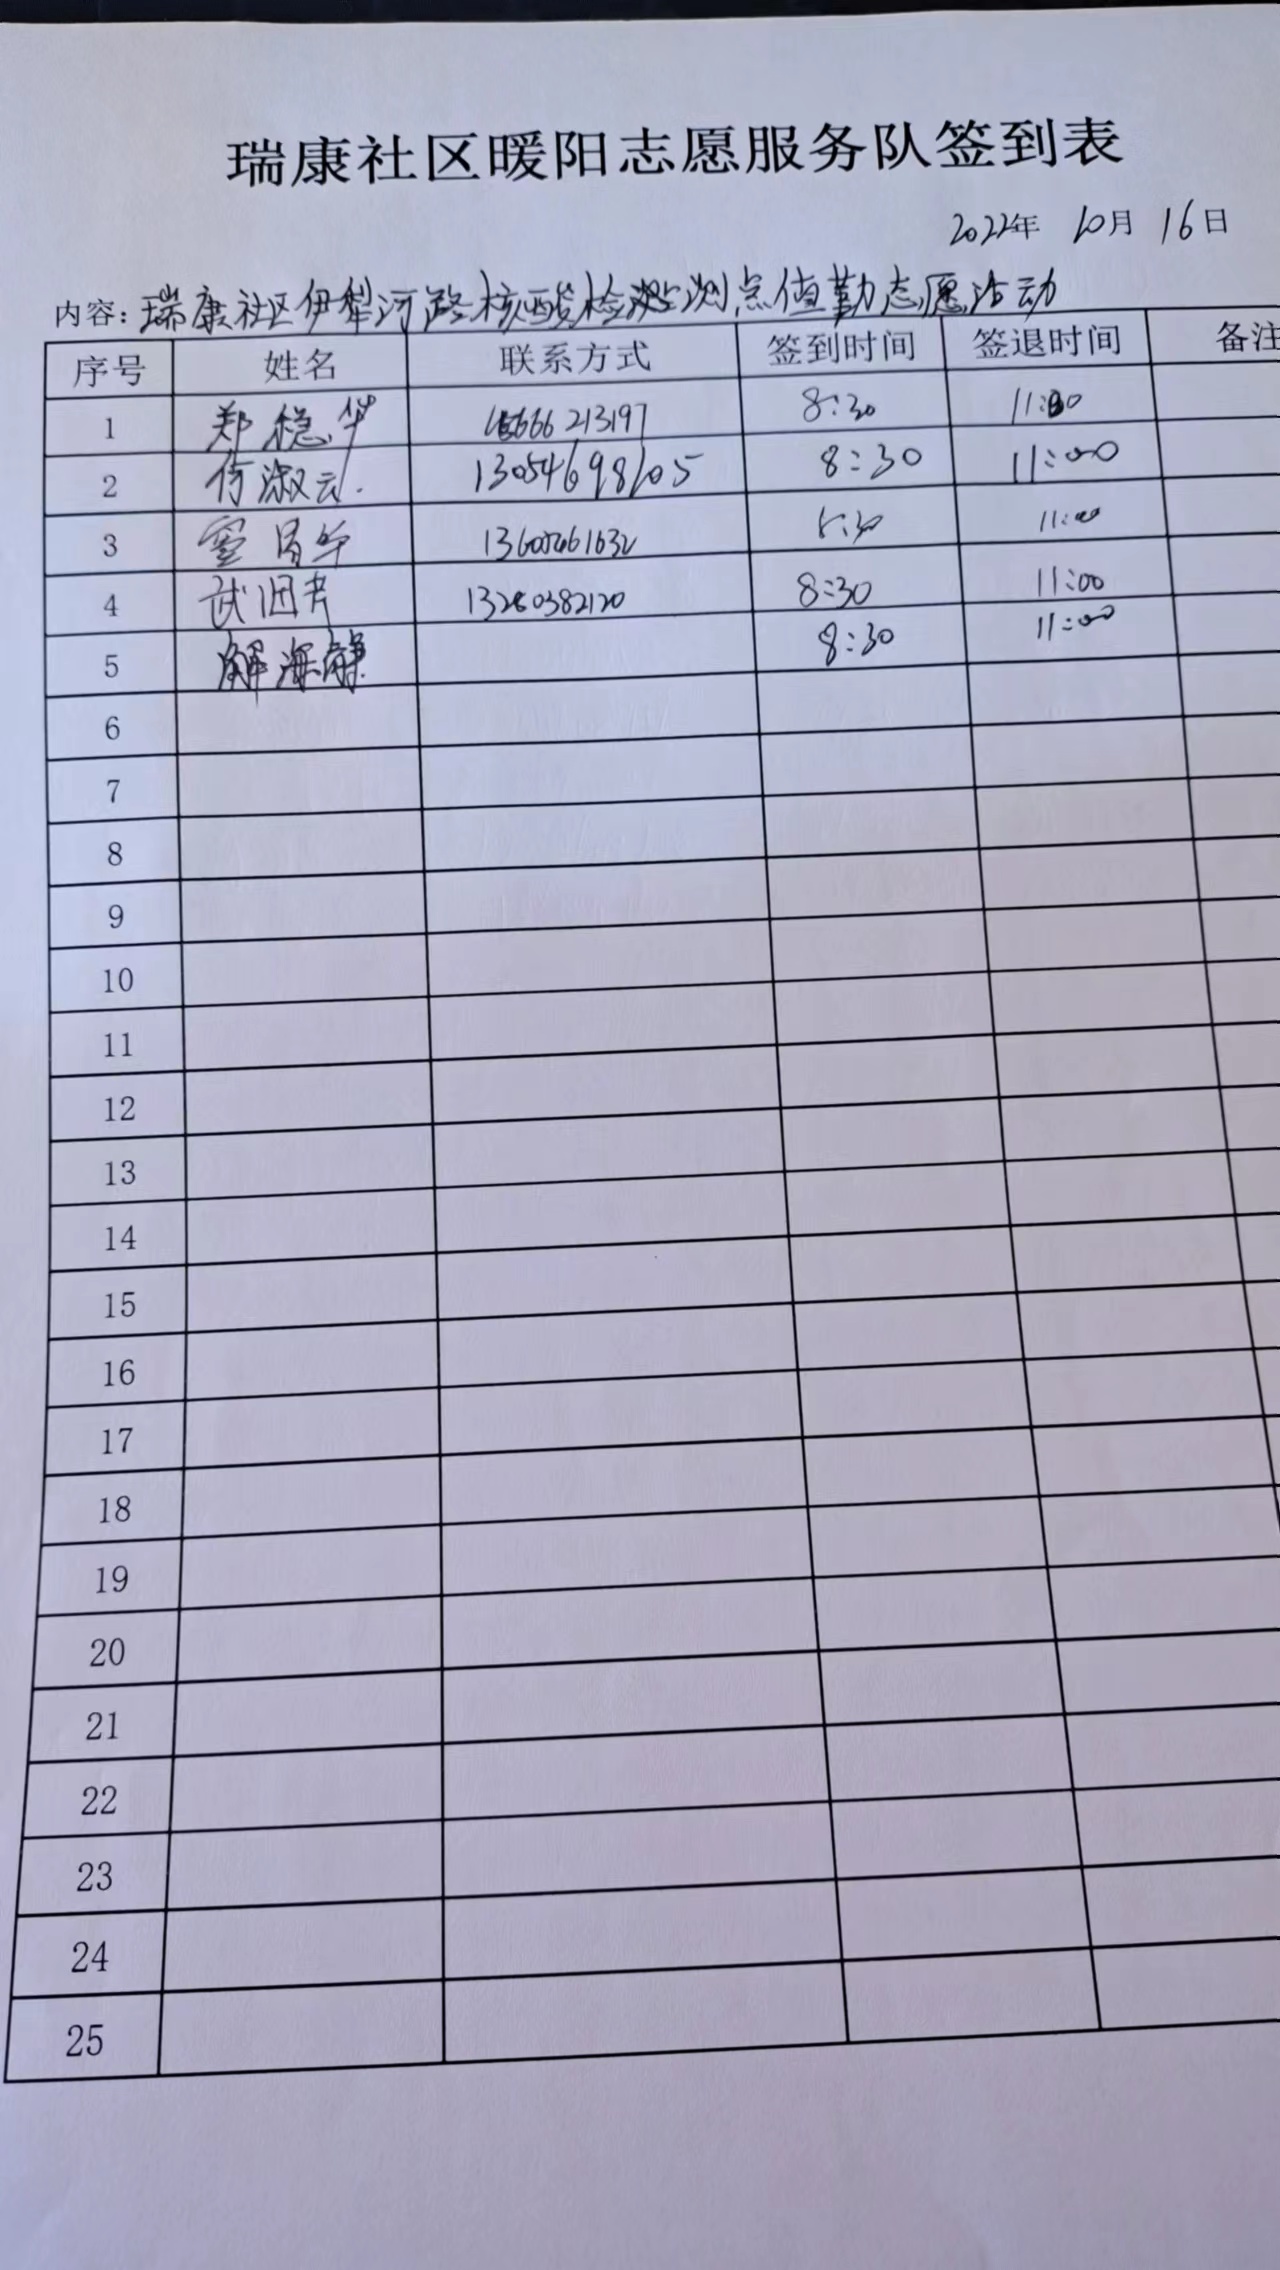 瑞康社区暖阳志愿服务队签到表
2022年 10月 16日
内容：瑞康社区伊犁河路核酸检测点值勤志愿活动
序号 姓名 联系方式 签到时间 签退时间 备注
1 郑稳华 8:30 11:00
2 何淑云. 13054698105 8:30 11:00
3 8:30 11:00
4 13280382120 8:30 11:00
5 解海麟 8:30 11:00
6
7
8
9
10
11
12
13
14
15
16
17
18
19
20
21
22
23
24
25